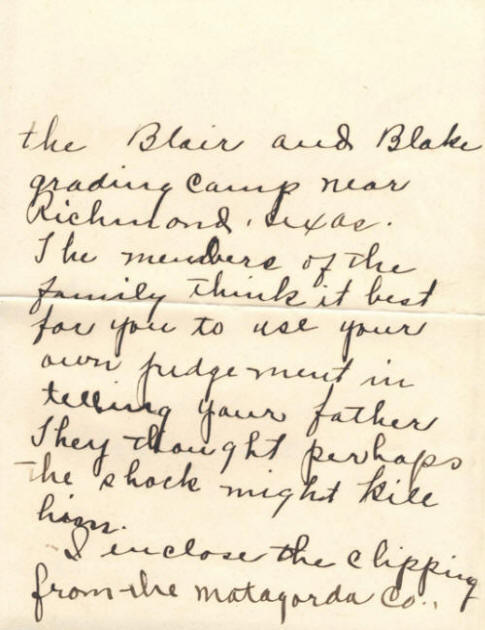 the Blair and Blake
grading camp near
Richmond, Texas.
The members of the
family think it best
for you to use your
own judgement in
telling your father
They thought perhaps
the shock might kill
him.
I enclose the clipping
from the Matagorda Co.,